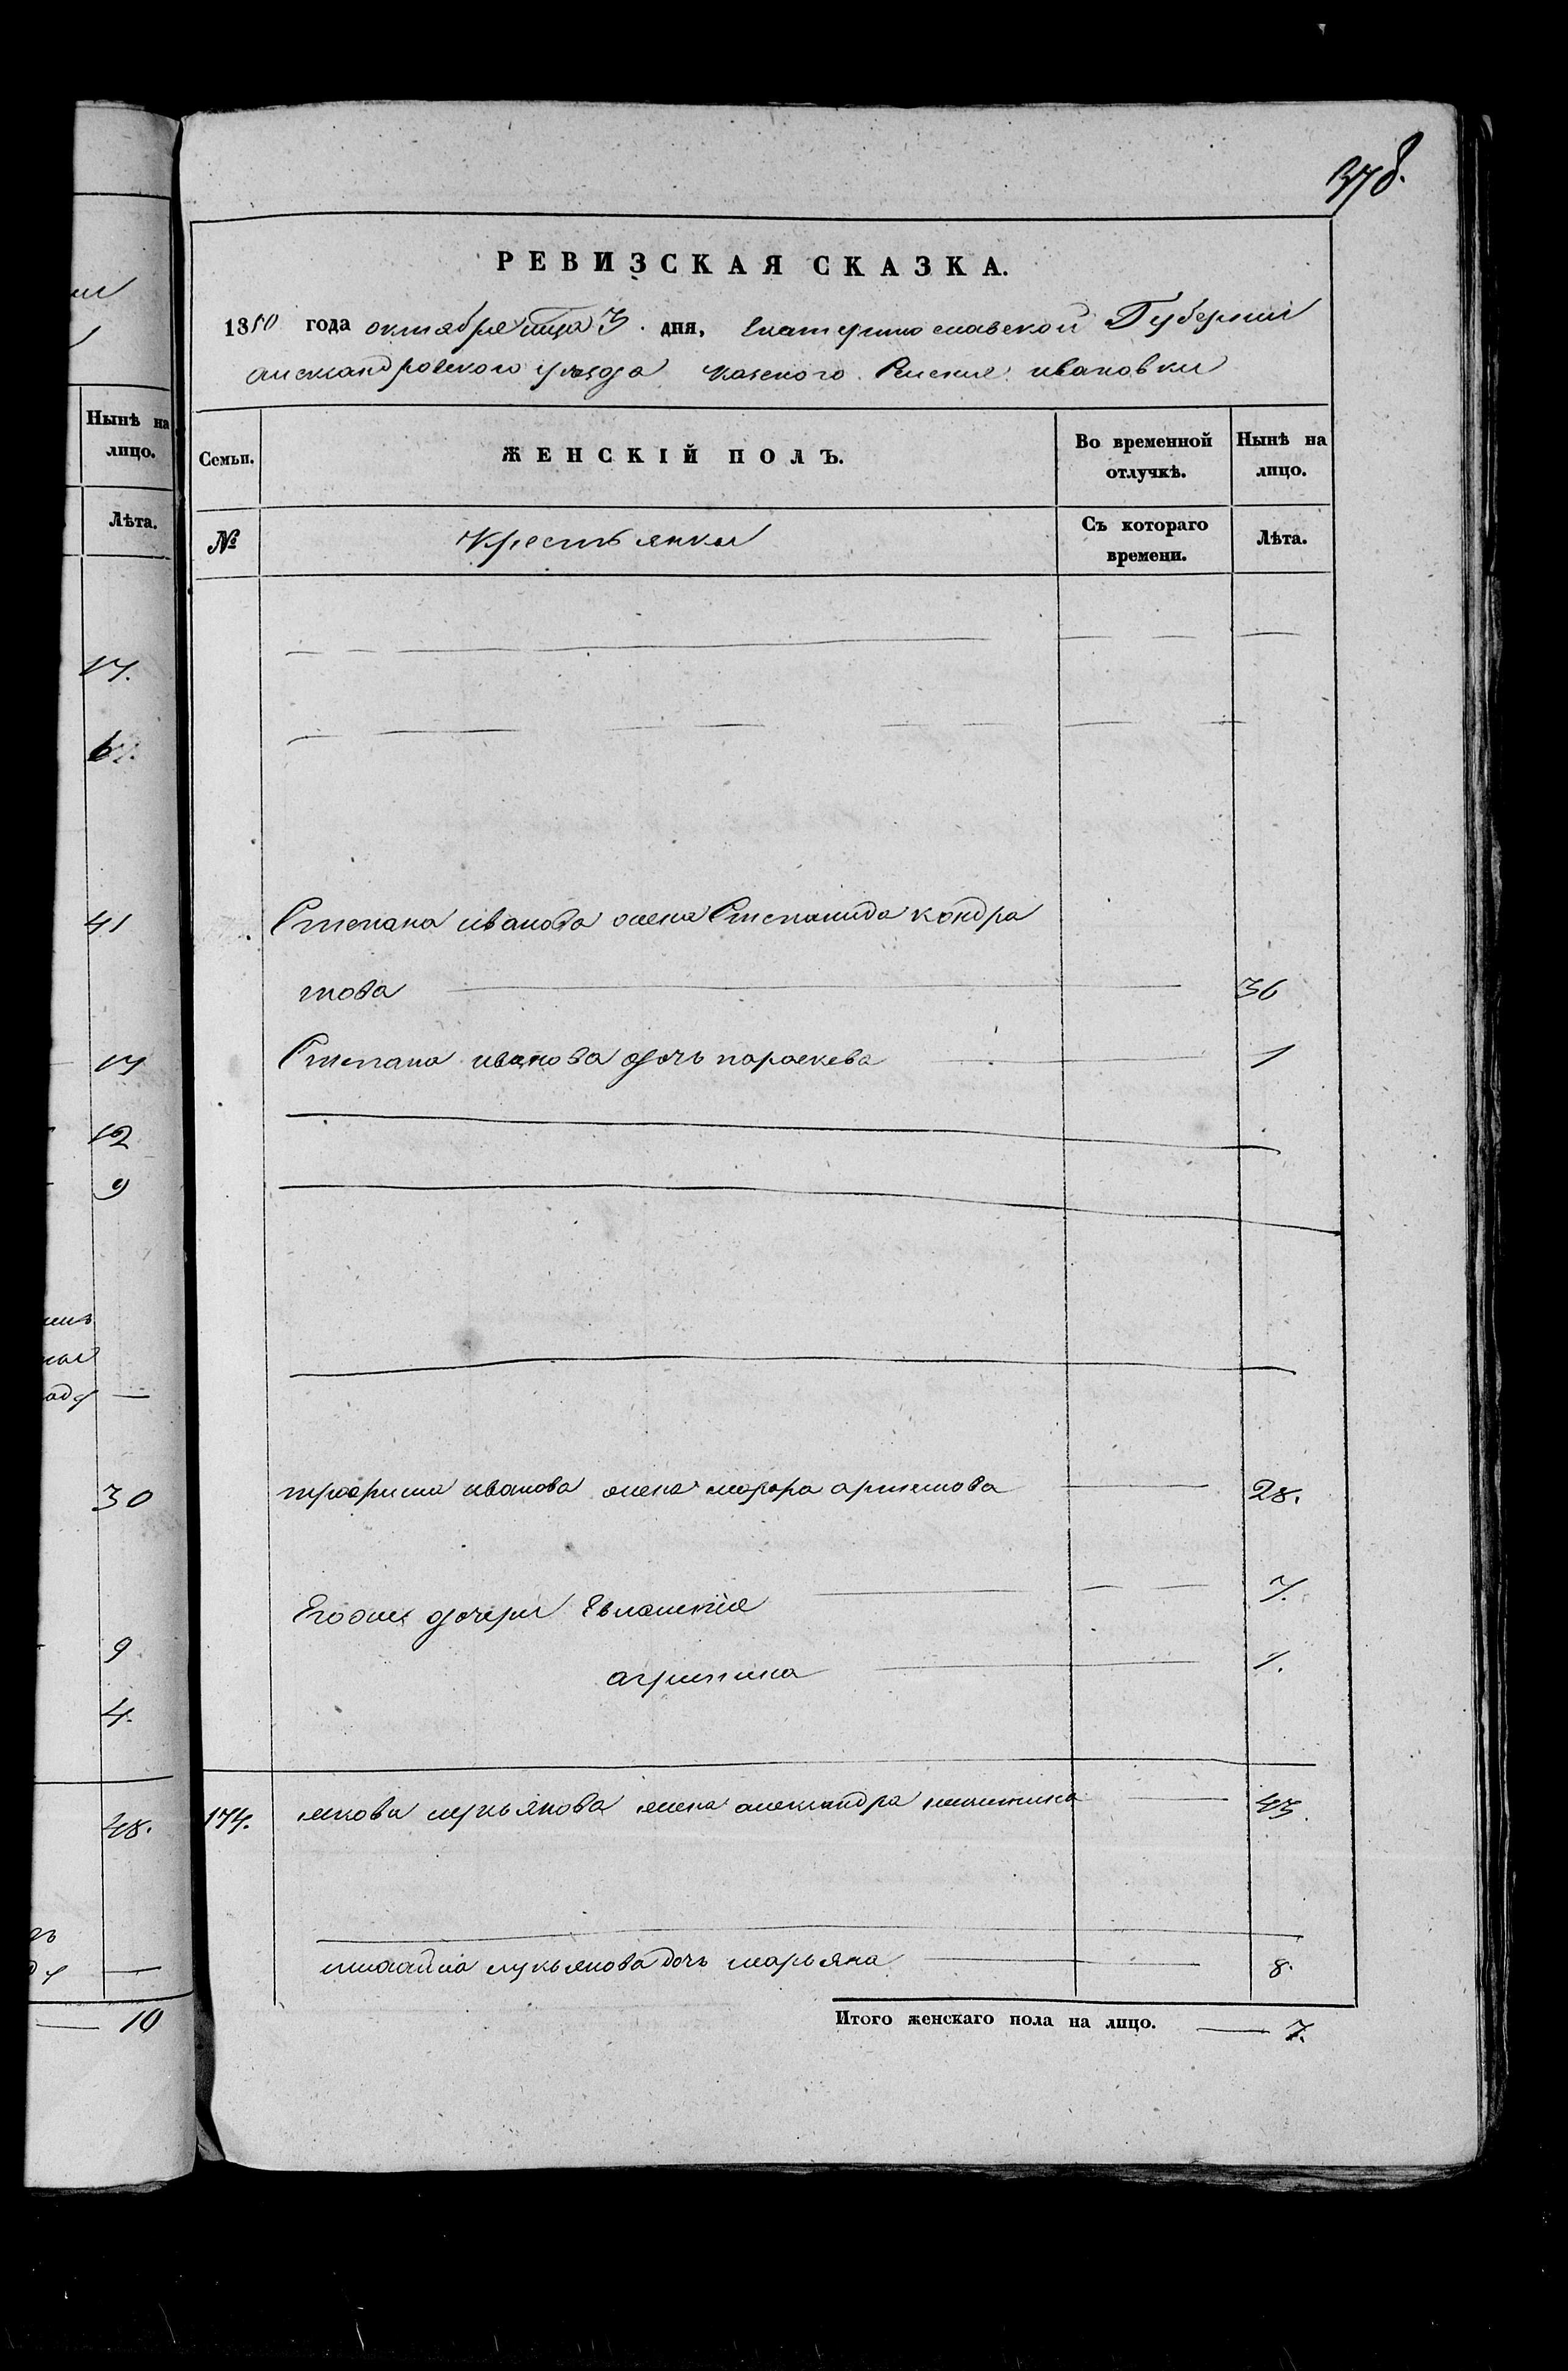 378.
РЕВИЗСКАЯ СКАЗКА.
1850 года октября мца 3. дня, Екатеринославской Губернии
александровского уезда казеного Селения ивановки
Нынѣ на лицо.
Лѣта.
Семьи. ЖЕНСКІЙ ПОЛЪ. Во временной отлучкѣ. Нынѣ на лицо.
№ Крестьянки Съ котораго времени. Лѣта.
17.
41
Степана иванова жена Степанида кондра
това 36
17 Степана иванова дочь параскева 1
12
9
30 трофима иванова жена марфа артемова 28.
Егоже дочери Евлампія 7.
9 агрипина 1.
4.
48. 174. якова лукьянова жена александра никитина 43.
михайла лукьянова дочь марьяна 8.
10 Итого женскаго пола на лицо. 7.